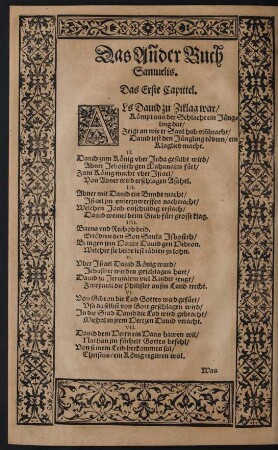 Das Ander Buch
Samuelis.
Das Erste Capittel.
ALs Dauid zu Ziklag war/
Kömpt aus der Schlacht ein Jüng-
ling dar/
Zeigt an wie er Saul hab vmbracht/
Dauid lest den Jüngling tödten/ ein
Klaglied macht.
II.
Dauid zum König vber Juda gesalbt wird/
Abner Jsboseth gen Mahanaim fürt/
Zum König macht vber Jsrael/
Von Abner wird erschlagen Asahel.
III.
Abner mit Dauid ein Bundt macht/
Jsrael jm vnterzuwerffen nachtracht/
Welchen Joab vnschuldig ersach/
Dauid weinet beim Grab fürt grosse klag.
IIII.
Baena vnd Rechob beid,
Ertödten den Son Sauls Jsboseth/
Bringen sein Haupt Dauid gen Hebron,
Welcher sie beide lest tödten zu lohn.
V.
Vber Jsrael Dauid König ward/
Jebusiter werden geschlagen hart/
Dauid zu Jerusalem viel Kinder zeuget/
Zweymal die Philister aus dem Land treibt.
VI.
Von Gibeon die Lad Gottes wird gefürt/
Vsa daselbst von Gott geschlagen wird/
In die Stad Dauid die Lad wird gebracht/
Michal in jrem Hertzen Dauid veracht.
VII.
Dauid dem Herrn ein Haus bawen wil/
Nathan jm fürhelt Gottes befehl/
Von seinem Leib herkommen sol/
Christus/ ein König regieren wol.
Was